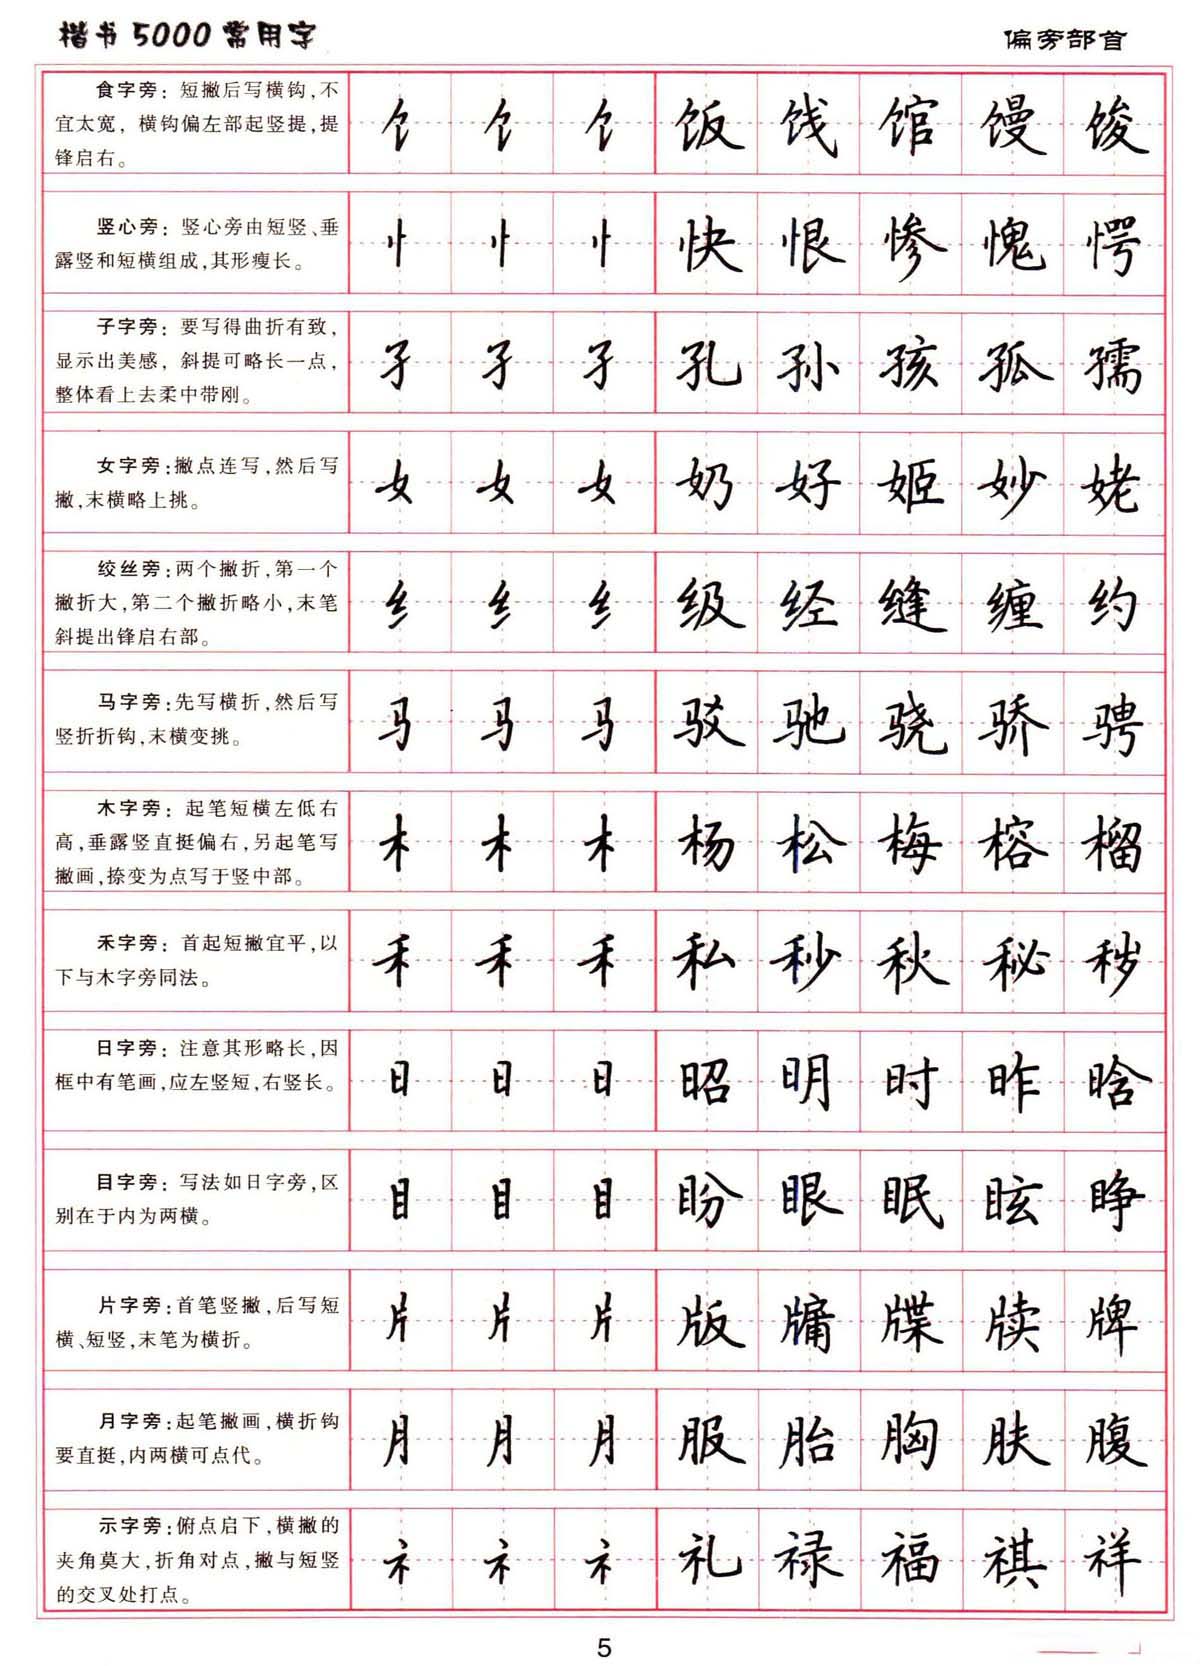 楷书5000常用字
偏旁部首
食字旁：短撇后写横钩,不
宜太宽，横钩偏左部起竖提,提
锋启右。
饣 饣 饣 饭 饯 馆 馒 馂
竖心旁：竖心旁由短竖、垂
露竖和短横组成,其形瘦长。
忄 忄 忄 快 恨 惨 愧 愕
子字旁：要写得曲折有致，
显示出美感，斜提可略长一点，
整体看上去柔中带刚。
孑 孑 孑 孔 孙 孩 孤 孺
女字旁:撇点连写,然后写
撇,末横略上挑。
女 女 女 奶 好 姬 妙 姥
绞丝旁:两个撇折,第一个
撇折大,第二个撇折略小,末笔
斜提出锋启右部。
纟 纟 纟 级 经 缝 缠 约
马字旁:先写横折,然后写
竖折折钩,末横变挑。
马 马 马 驳 驰 骁 骄 骋
木字旁：起笔短横左低右
高,垂露竖直挺偏右,另起笔写
撇画,捺变为点写于竖中部。
木 木 木 杨 松 梅 榕 榴
禾字旁：首起短撇宜平,以
下与木字旁同法。
禾 禾 禾 私 秒 秋 秘 秽
日字旁：注意其形略长,因
框中有笔画,应左竖短,右竖长。
日 日 日 昭 明 时 昨 晗
目字旁：写法如日字旁,区
别在于内为两横。
目 目 目 盼 眼 眠 眩 睁
片字旁:首笔竖撇,后写短
横、短竖,末笔为横折。
片 片 片 版 牗 牒 牍 牌
月字旁:起笔撇画,横折钩
要直挺,内两横可点代。
月 月 月 服 胎 胸 肤 腹
示字旁:俯点启下,横撇的
夹角莫大,折角对点,撇与短竖
的交叉处打点。
礻 礻 礻 礼 禄 福 祺 祥
5